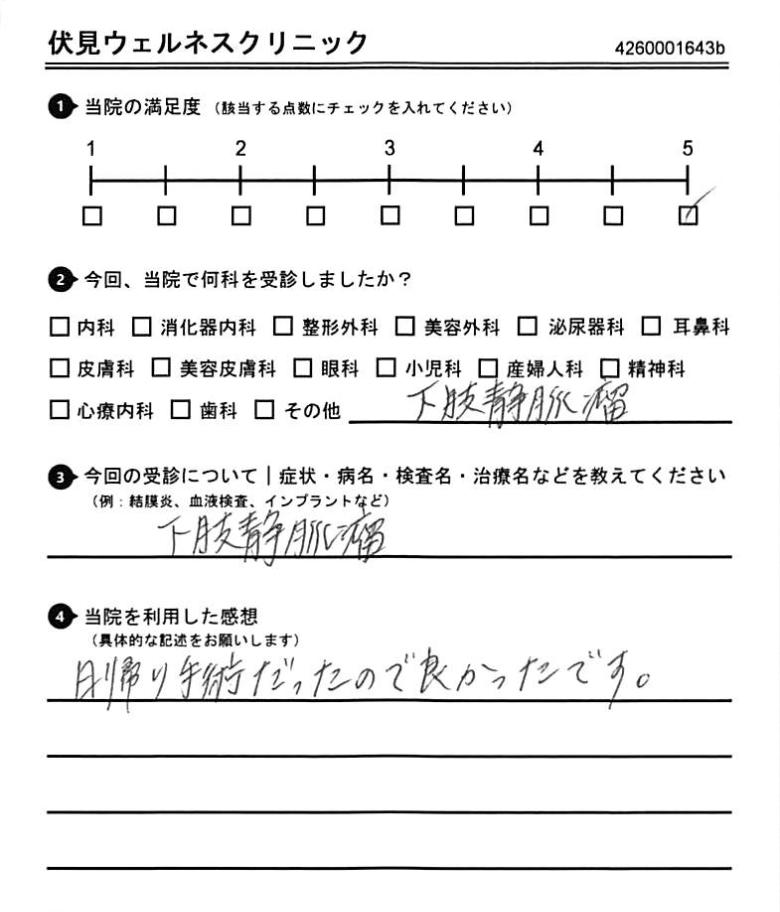 伏見ウェルネスクリニック
4260001643b
1 当院の満足度 （該当する点数にチェックを入れてください）
1 2 3 4 5
□ □ □ □ □ □ □ □ ☑
2 今回、当院で何科を受診しましたか？
□ 内科 □ 消化器内科 □ 整形外科 □ 美容外科 □ 泌尿器科 □ 耳鼻科
□ 皮膚科 □ 美容皮膚科 □ 眼科 □ 小児科 □ 産婦人科 □ 精神科
□ 心療内科 □ 歯科 □ その他 下肢静脈瘤
3 今回の受診について｜症状・病名・検査名・治療名などを教えてください
（例：結膜炎、血液検査、インプラントなど）
下肢静脈瘤
4 当院を利用した感想
（具体的な記述をお願いします）
日帰り手術だったので良かったです。